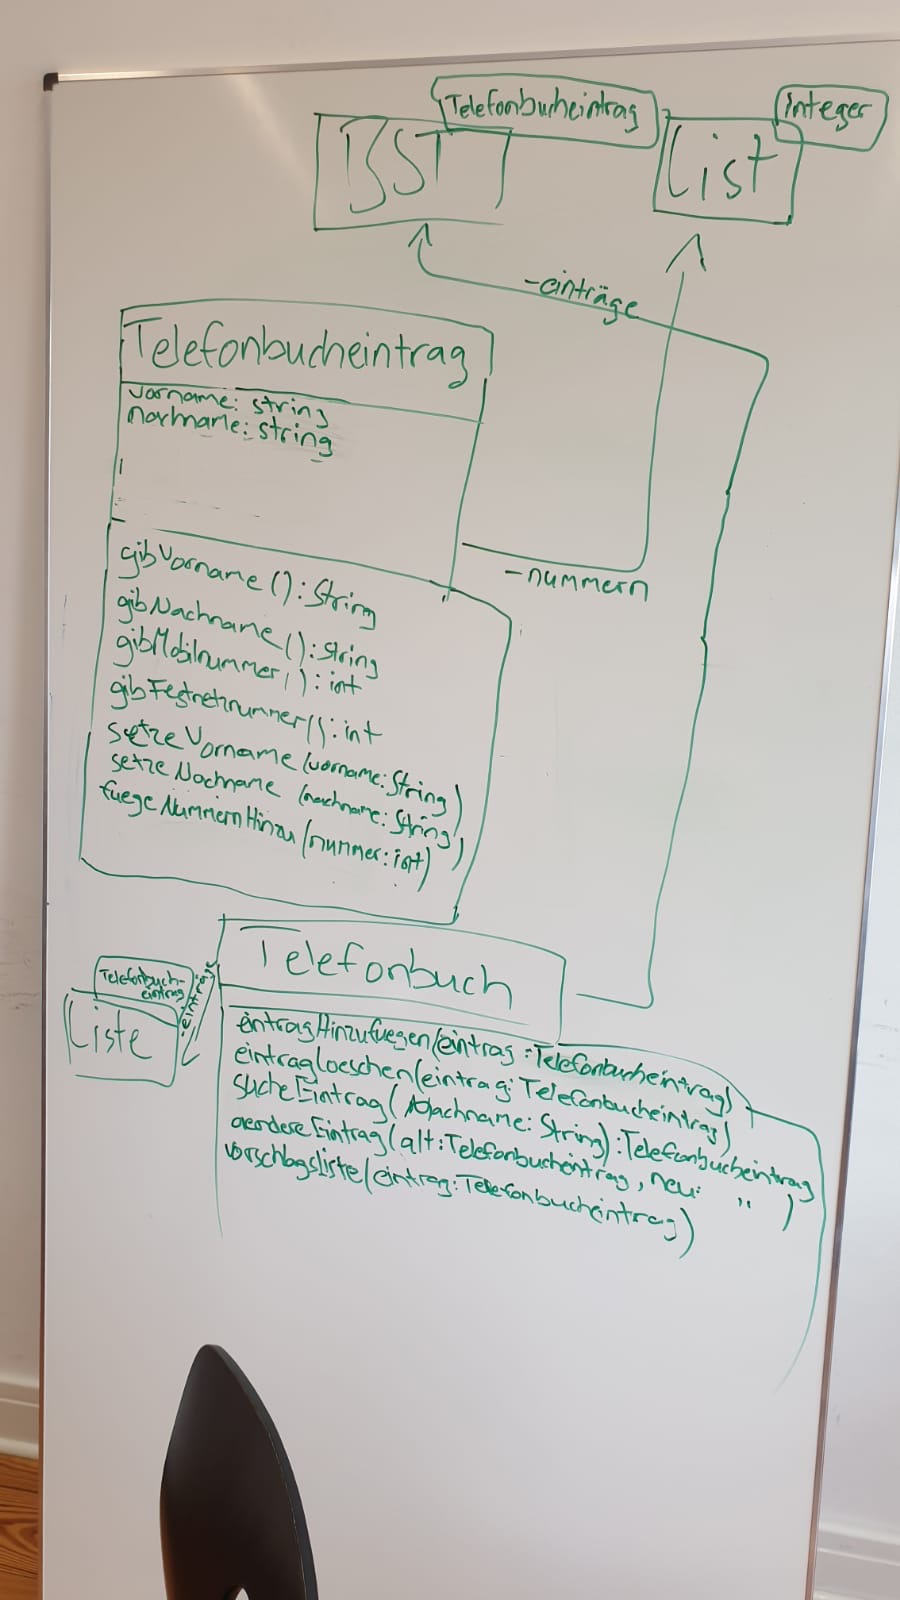 Telefonbucheintrag
BST
integer
List
-einträge
Telefonbucheintrag
vorname: string
nachname: string
-nummern
gibVorname(): String
gibNachname(): string
gibMobilnummer(): int
gibFestnetznummer(): int
setzeVorname(vorname: String)
setzeNachname (nachname: String)
fuegeNummernHinzu(nummer: int)
Telefonbuch
Telefonbuch-
eintrag
-einträge
Liste
eintragHinzufuegen(eintrag: Telefonbucheintrag)
eintragloeschen(eintrag: Telefonbucheintrag)
sucheEintrag(Nachname: String): Telefonbucheintrag
aendereEintrag(alt: Telefonbucheintrag, neu: " )
vorschlagsliste(eintrag: Telefonbucheintrag)